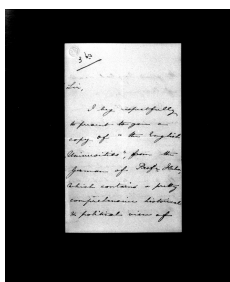 360
Sir,
I beg respectfully
to present to you a
copy of "the English
Universities", from the
German of. Prof. Huber
which contains a pretty
comprehensive historical
& political view of